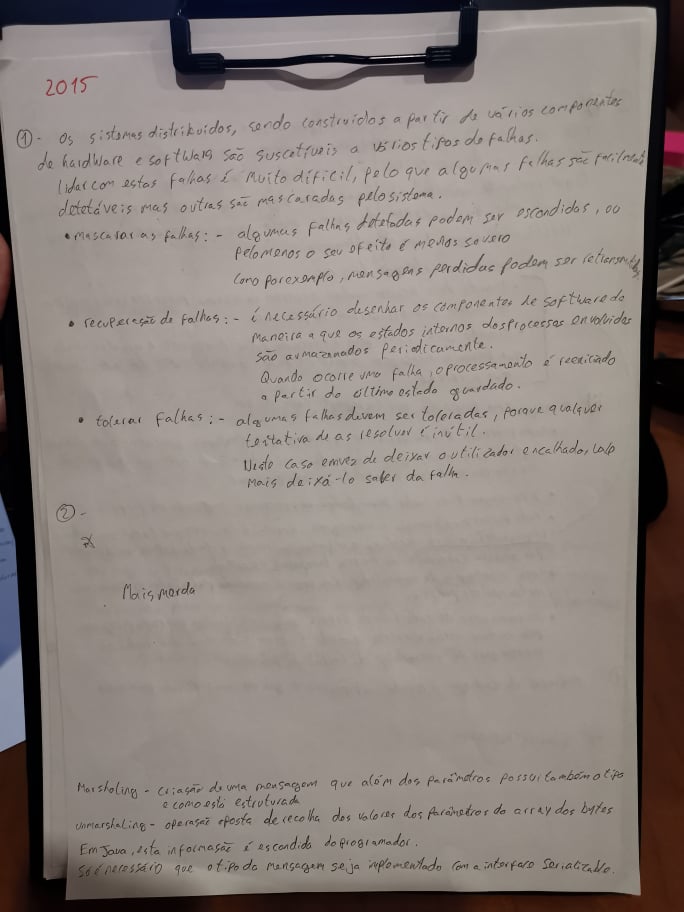 2015
① - Os sistemas distribuidos, sendo construidos a partir de vários componentes
de hardware e software são suscetíveis a vários tipos de falhas.
Lidar com estas falhas é muito difícil, pelo que algumas falhas são facilmente
detetáveis mas outras são mascaradas pelo sistema.
• mascarar as falhas: - algumas falhas detetadas podem ser escondidas, ou
pelo menos o seu efeito é menos severo
como por exemplo, mensagens perdidas podem ser
• recuperação de falhas: - é necessário desenhar os componentes de software de
maneira a que os estados internos dos processos envolvidos
são armazenados periodicamente.
Quando ocorre uma falha, o processamento é reeniciado
a partir do último estado guardado.
• tolerar falhas: - algumas falhas devem ser toleradas, porque qualquer
tentativa de as resolver é inútil.
Neste caso em vez de deixar o utilizador encalhado, vale
mais deixá-lo saber da falha.
② -
Mais merda
Marshaling - criação de uma mensagem que além dos parâmetros possui também o tipo
e como está estruturada
unmarshaling - operação oposta de recolha dos valores dos parâmetros do array dos bytes
Em Java, esta informação é escondida do programador.
Só é necessário que o tipo da mensagem seja implementado com a interface Serializable.